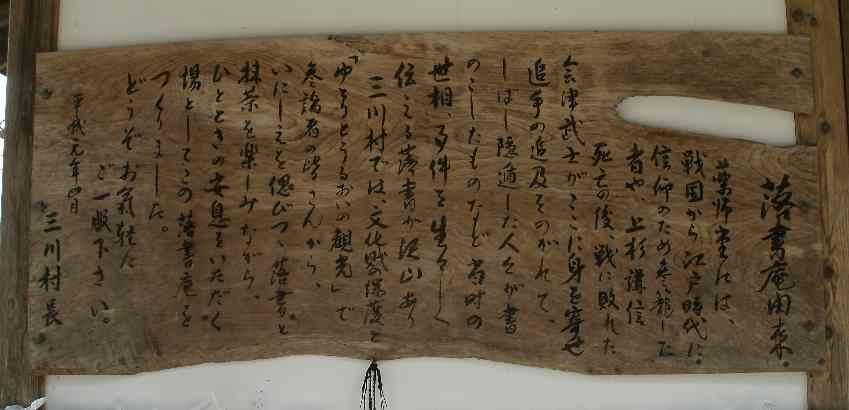 落書庵由来
薬師堂には、
戦国から江戸時代に
信仰のため参籠した
者や、上杉謙信
死亡の後、戦に敗れた
会津武士がここに身を寄せ
追手の追及をのがれて、
しばし隠遁した人々が書
のこしたものなど当時の
世相、事件を生々しく
伝える落書が沢山あり
三川村では、文化財保護と
「ゆとりとうるおいの観光」で
参詣者の皆さんから、
いにしえを偲びつゝ落書と
抹茶を楽しみながら、
ひとときの安息をいただく
場としてこの落書庵を
つくりました。
どうぞお気軽に
ご一服下さい。
平成元年四月
三川村長